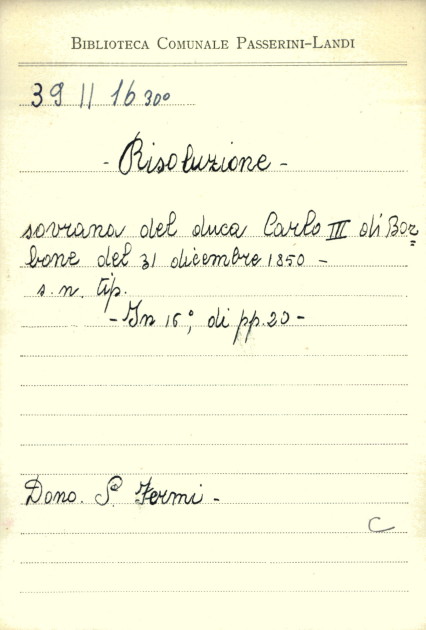 BIBLIOTECA COMUNALE PASSERINI-LANDI
39 || 16 300
- Risoluzione -
sovrana del duca Carlo III di Bor=
bone del 31 dicembre 1850 -
s. n. tip.
- In 16°, di pp. 20 -
Dono. S. Fermi -
C